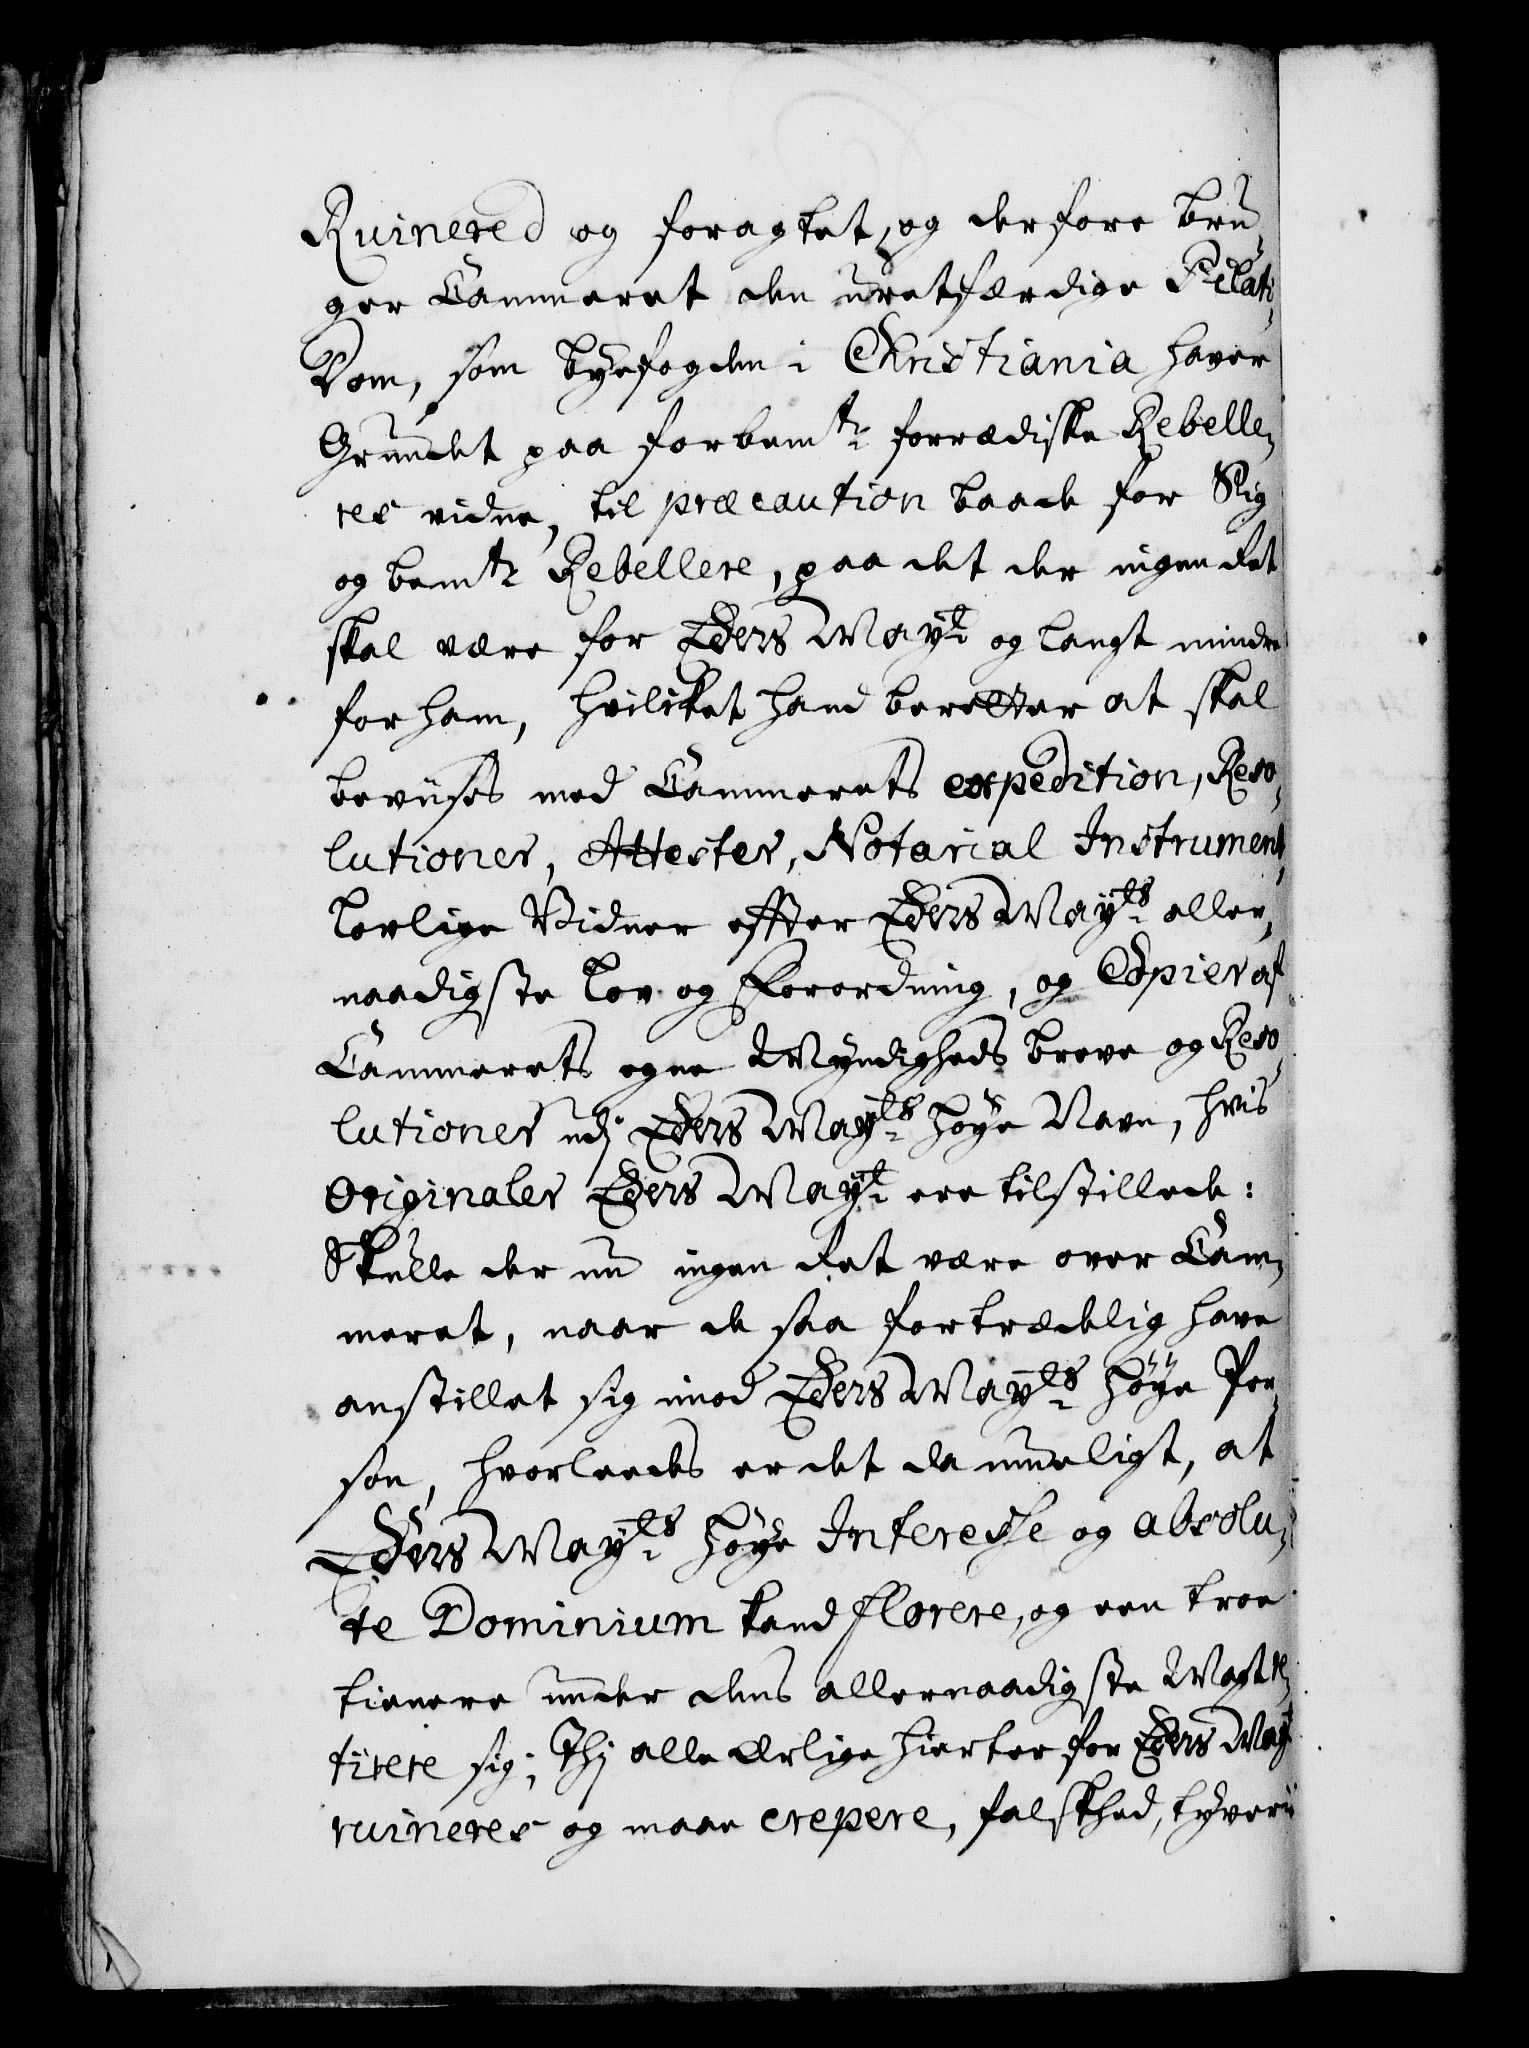 Ruinered og foragtet, og derfore bru-
ger Cammeret den uretfærdige Pilati
Dom, som byefogden i Christiania haver
Grundet paa forbemte forrædiske Rebelle-
res vidne, til præcaution baade for Sig
og bemte Rebellere, paa det der ingen Ret
skal være for Eders Mayt og langt mindre
for ham, hvilcket hand beretter at skal
beviises med Cammerets expedition, Reso-
lutioner, Attester, Notarial Instrument,
lovlige Vidner effter Eders Mayts aller-
naadigste Lov og Forordning, og Copier af
Cammerets egne Myndigheds breve og Reso-
lutioner udj Eders Mayts höye Navn, hvis
Originaler Eders Mayt ere tilstillede:
Skulle der nu ingen Ret være over Cam-
meret, naar de saa fortrædelig have
anstillet sig imod Eders Mayts höye Per-
son, hvorleedes er det da mueligt, at
Eders Mayts höye Interesse og absolu-
te Dominium kand florere, og een troe
tienere under dens allernaadigste Magt re-
tirere sig; Thj alle ærlige hierter for Eders Mayt
ruineres og maae crepere, falskhed, tyverii